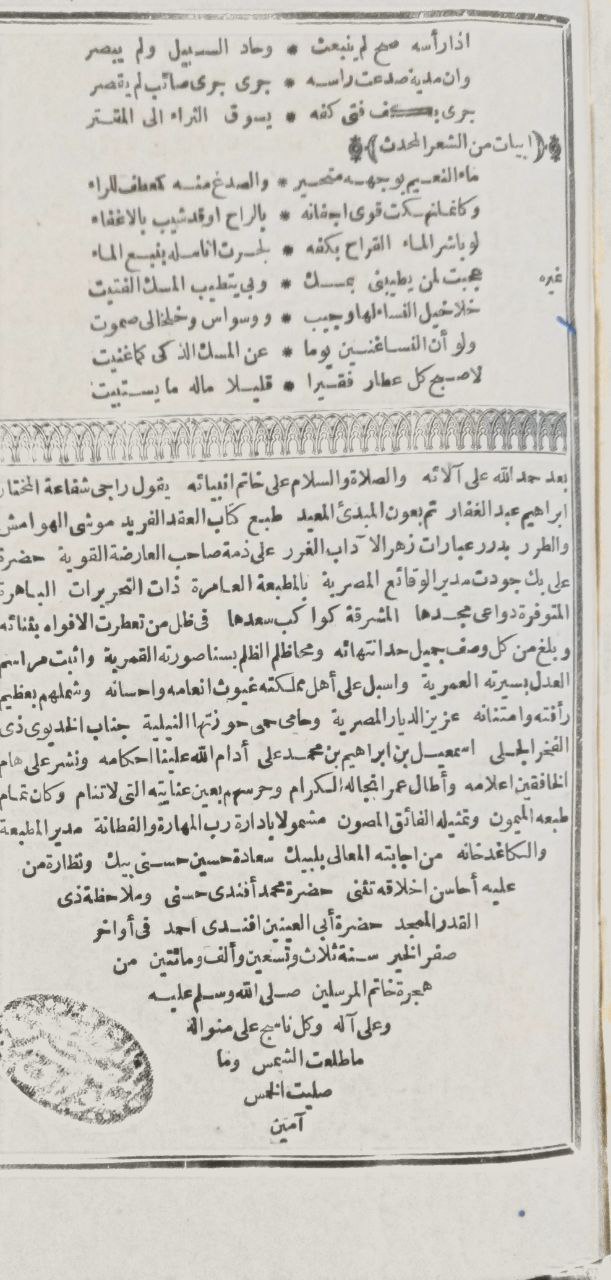 اذا رأسه صح لم ينبعث * وحاد السبيل ولم يبصر
وان مدية صدعت راسه * جرى جرى صائب لم يقصر
جرى بكف فتى كفه * يسوق الثراء الى المقتر
(ابيات من الشعر المحدث)
ماء النعيم بوجهه متحير * والصدغ منه كعطف الراء
وكأنما نهكت قوى اجفانه * بالراح او قد شيب بالاغفاء
لو باشر الماء القراح بكفه * لجرت انامله بنبع الماء
غيره عجبت لمن يطيبنى بمسك * وبى يتطيب المسك الفتيت
خلاخيل النساء لها وجيب * ووسواس وخلخالى صموت
ولو أن النسا غنين يوما * عن المسك الذكى كما غنيت
لاصبح كل عطار فقيرا * قليلا ماله ما يستبيت
بعد حمد الله على آلائه والصلاة والسلام على خاتم انبيائه يقول راجى شفاعة المختار
ابراهيم عبد الغفار تم بعون المبدئ المعيد طبع كتاب العقد الفريد موشى الهوامش
والطرر بدرر عبارات زهر الآداب الغرر على ذمة صاحب العارضة القوية حضرة
على بك جودت مدير الوقائع المصرية بالمطبعة العامرة ذات التحريرات الباهرة
المتوفرة دواعى مجدها المشرقة كواكب سعدها فى ظل من تعطرت الافواه بثنائه
وبلغ من كل وصف جميل حد انتهائه ومحا ظلم الظلم بسنا صورته القمرية واثبت مراسم
العدل بسيرته العمرية واسبل على أهل مملكته غيوث انعامه واحسانه وشملهم بعظيم
رأفته وامتنانه عزيز الديار المصرية وحامى حمى حوزتها النيلية جناب الخديوى ذى
الفخر الجلى اسمعيل بن ابراهيم بن محمد على أدام الله علينا احكامه ونشر على هام
الخافقين اعلامه وأطال عمر انجاله الكرام وحرسهم بعين عنايته التى لا تنام وكان تمام
طبعه الميمون وتمثيله الفائق المصون مشمولا بادارة رب المهارة والفطانة مدير المطبعة
والكاغدخانه من اجابته المعالى بلبيك سعادة حسين حسنى بيك ونظارة من
عليه أحاسن اخلاقه تثنى حضرة محمد أفندى حسنى وملاحظة ذى
القدر الممجد حضرة أبى العينين افندى احمد فى أواخر
صفر الخير سنة ثلاث وتسعين وألف ومائتين من
هجرة خاتم المرسلين صلى الله وسلم عليه
وعلى آله وكل ناسج على منواله
ما طلعت الشمس وما
صليت الخمس
آمين